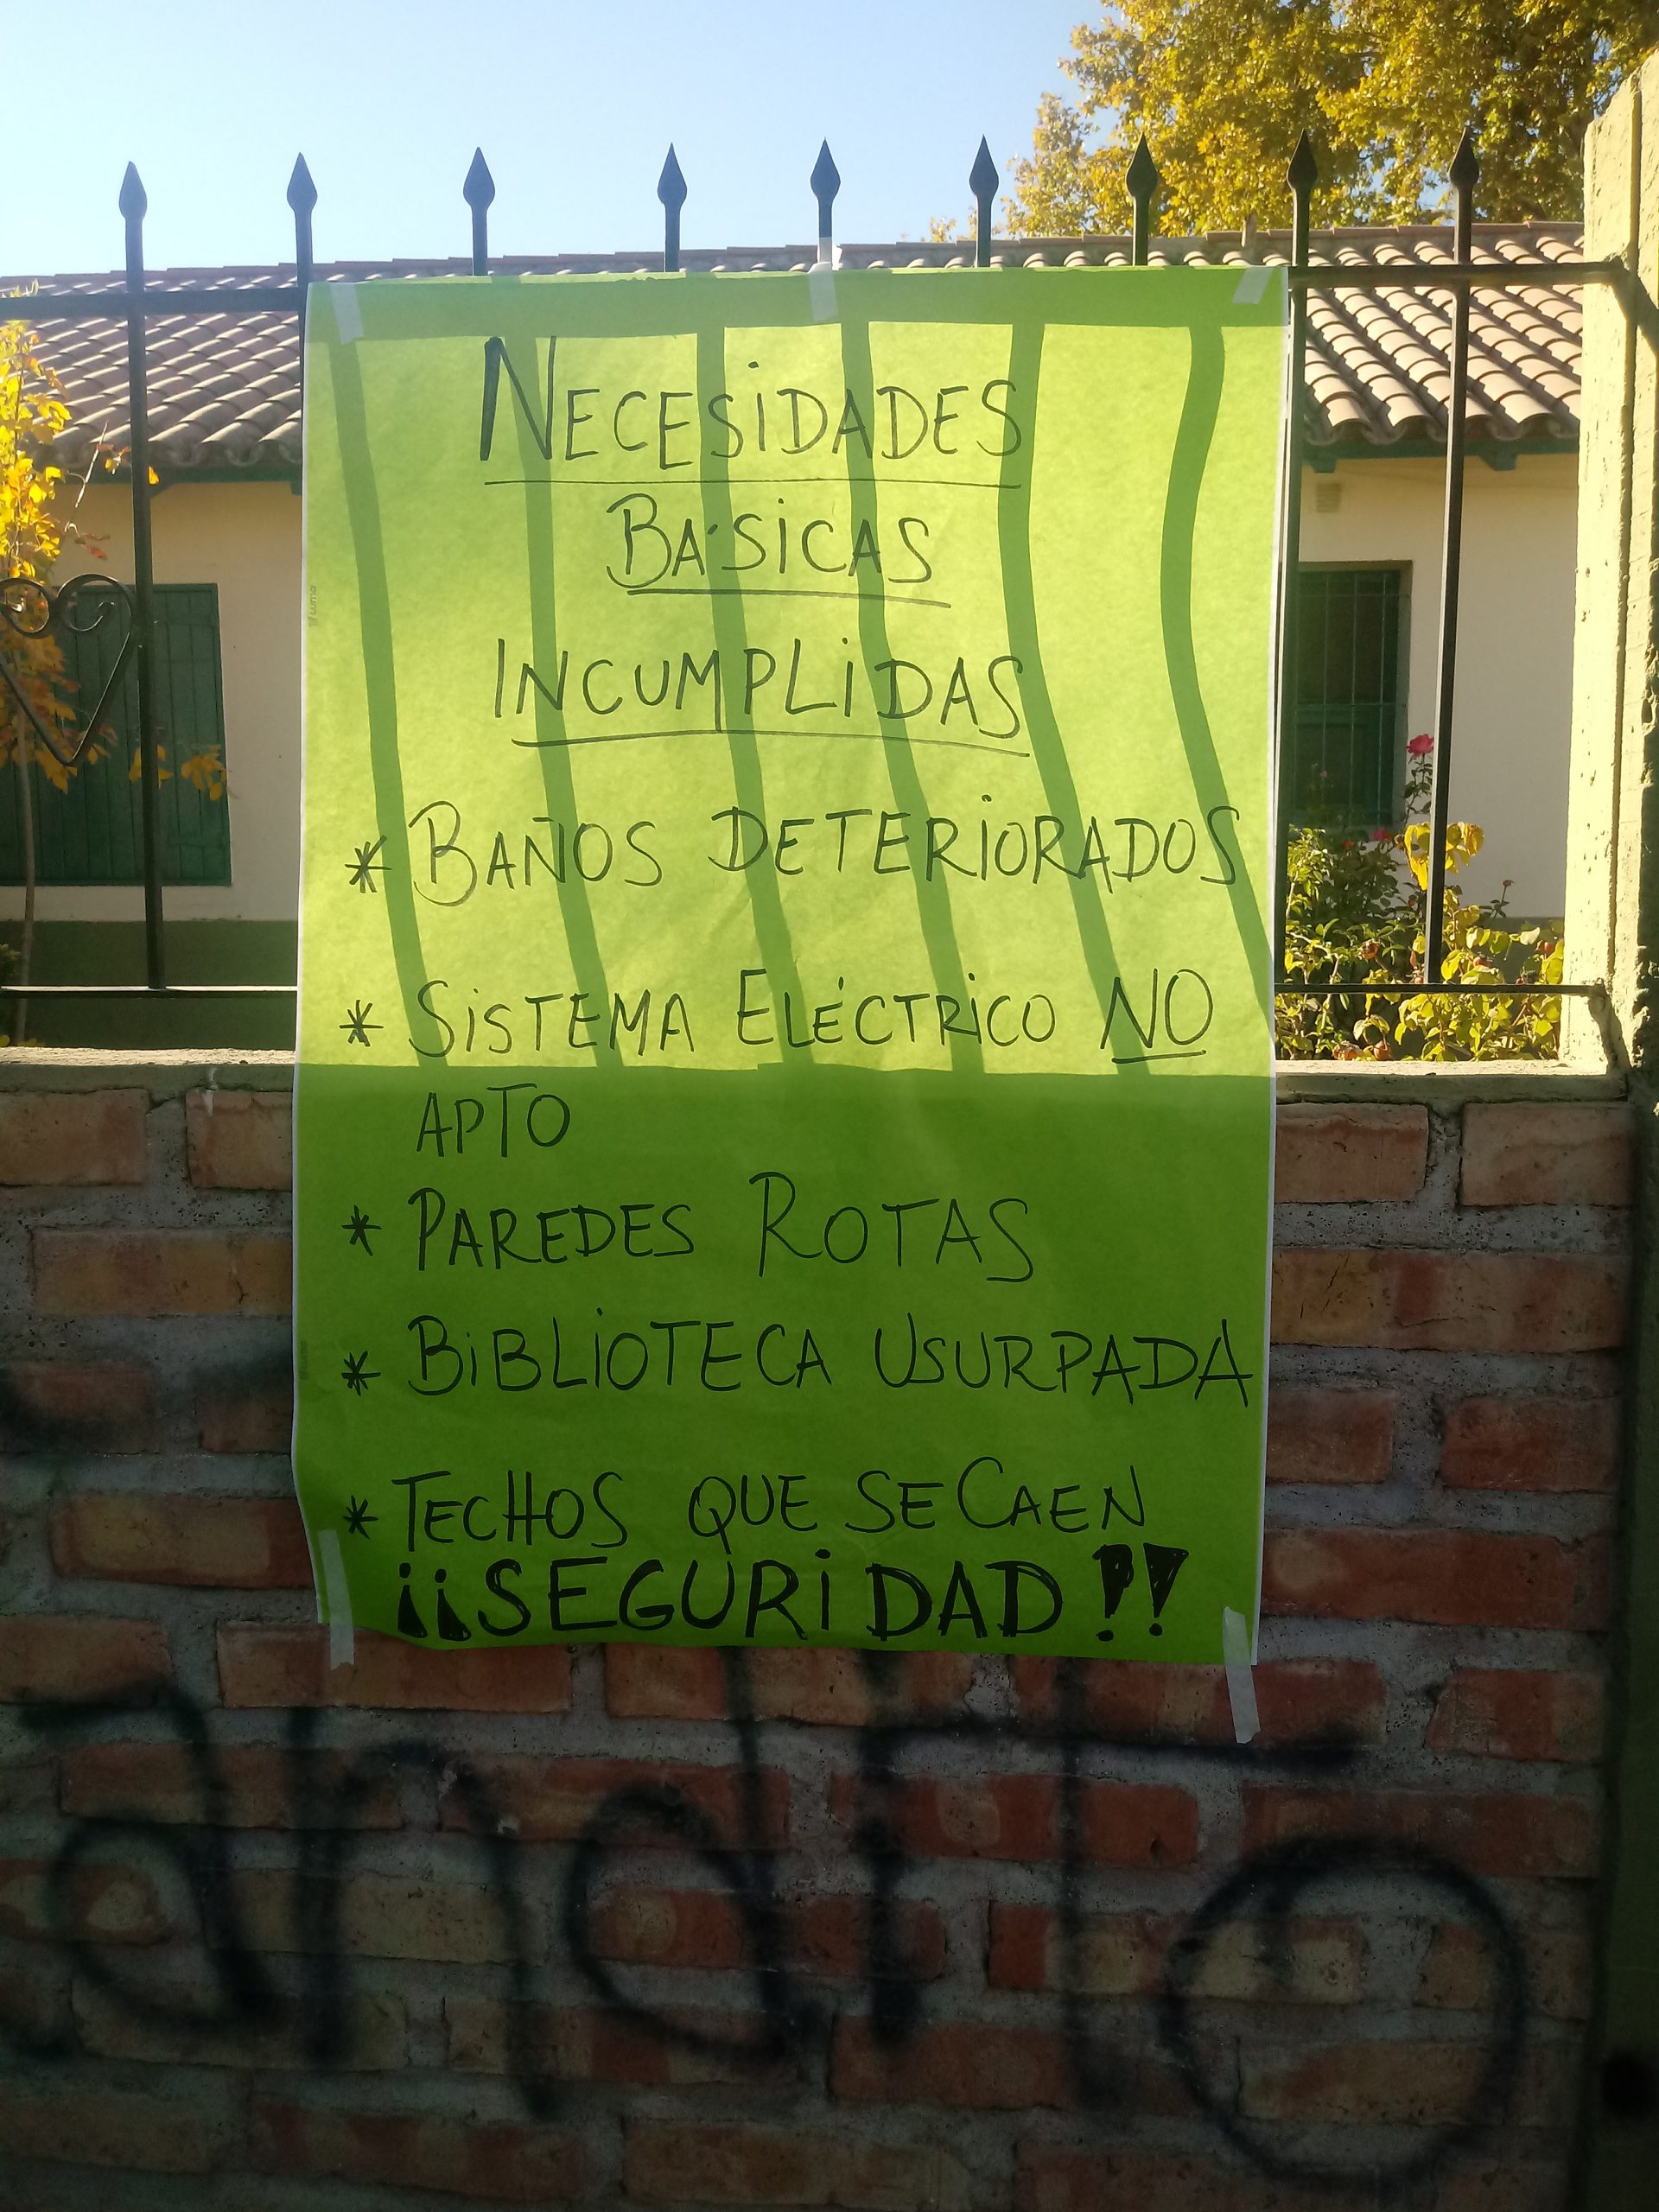 NECESIDADES
BÁSICAS
INCUMPLIDAS
* BAÑOS DETERIORADOS
* SISTEMA ELÉCTRICO NO
APTO
* PAREDES ROTAS
* BIBLIOTECA USURPADA
* TECHOS QUE SE CAEN
¡¡SEGURIDAD!!